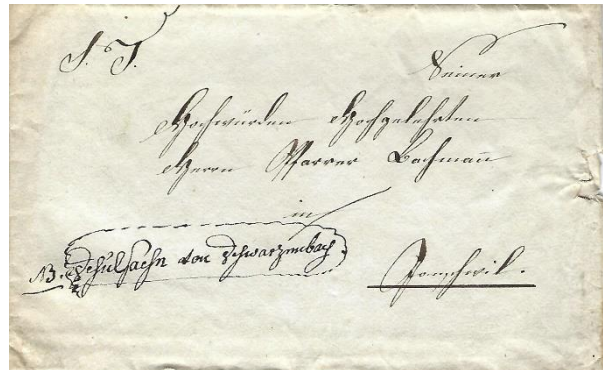 S. T. Seiner
Hochwürden Hochgelehrten
Herrn Pfarrer Bachman̄
in
NB. Schulsachn von Schwarzenbach.
Jonschwil.